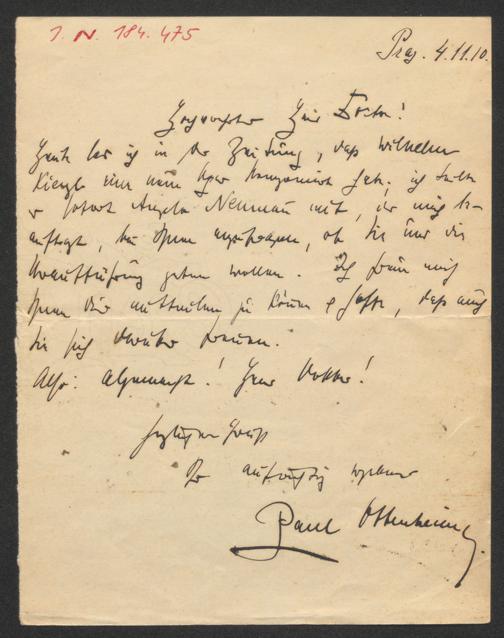 I. N. 184.475
Prag. 4.11.10.
Hochverehrter Herr Doctor!
Heute las ich in der Zeitung, daß Wilhelm
Kienzl eine neue Oper komponiert hat. ich teilte
es sofort Angelo Neumann mit, der mich be-
auftragt, bei Ihnen anzufragen, ob Sie uns die
Uraufführung geben wollen. Ich freue mich
Ihnen dies mitteilen zu können & hoffe, daß auch
Sie sich darüber freuen.
Also: ! Herr Doktor!
Herzlichen Gruß
Ihr aufrichtig ergebener
Paul Ottenheimer